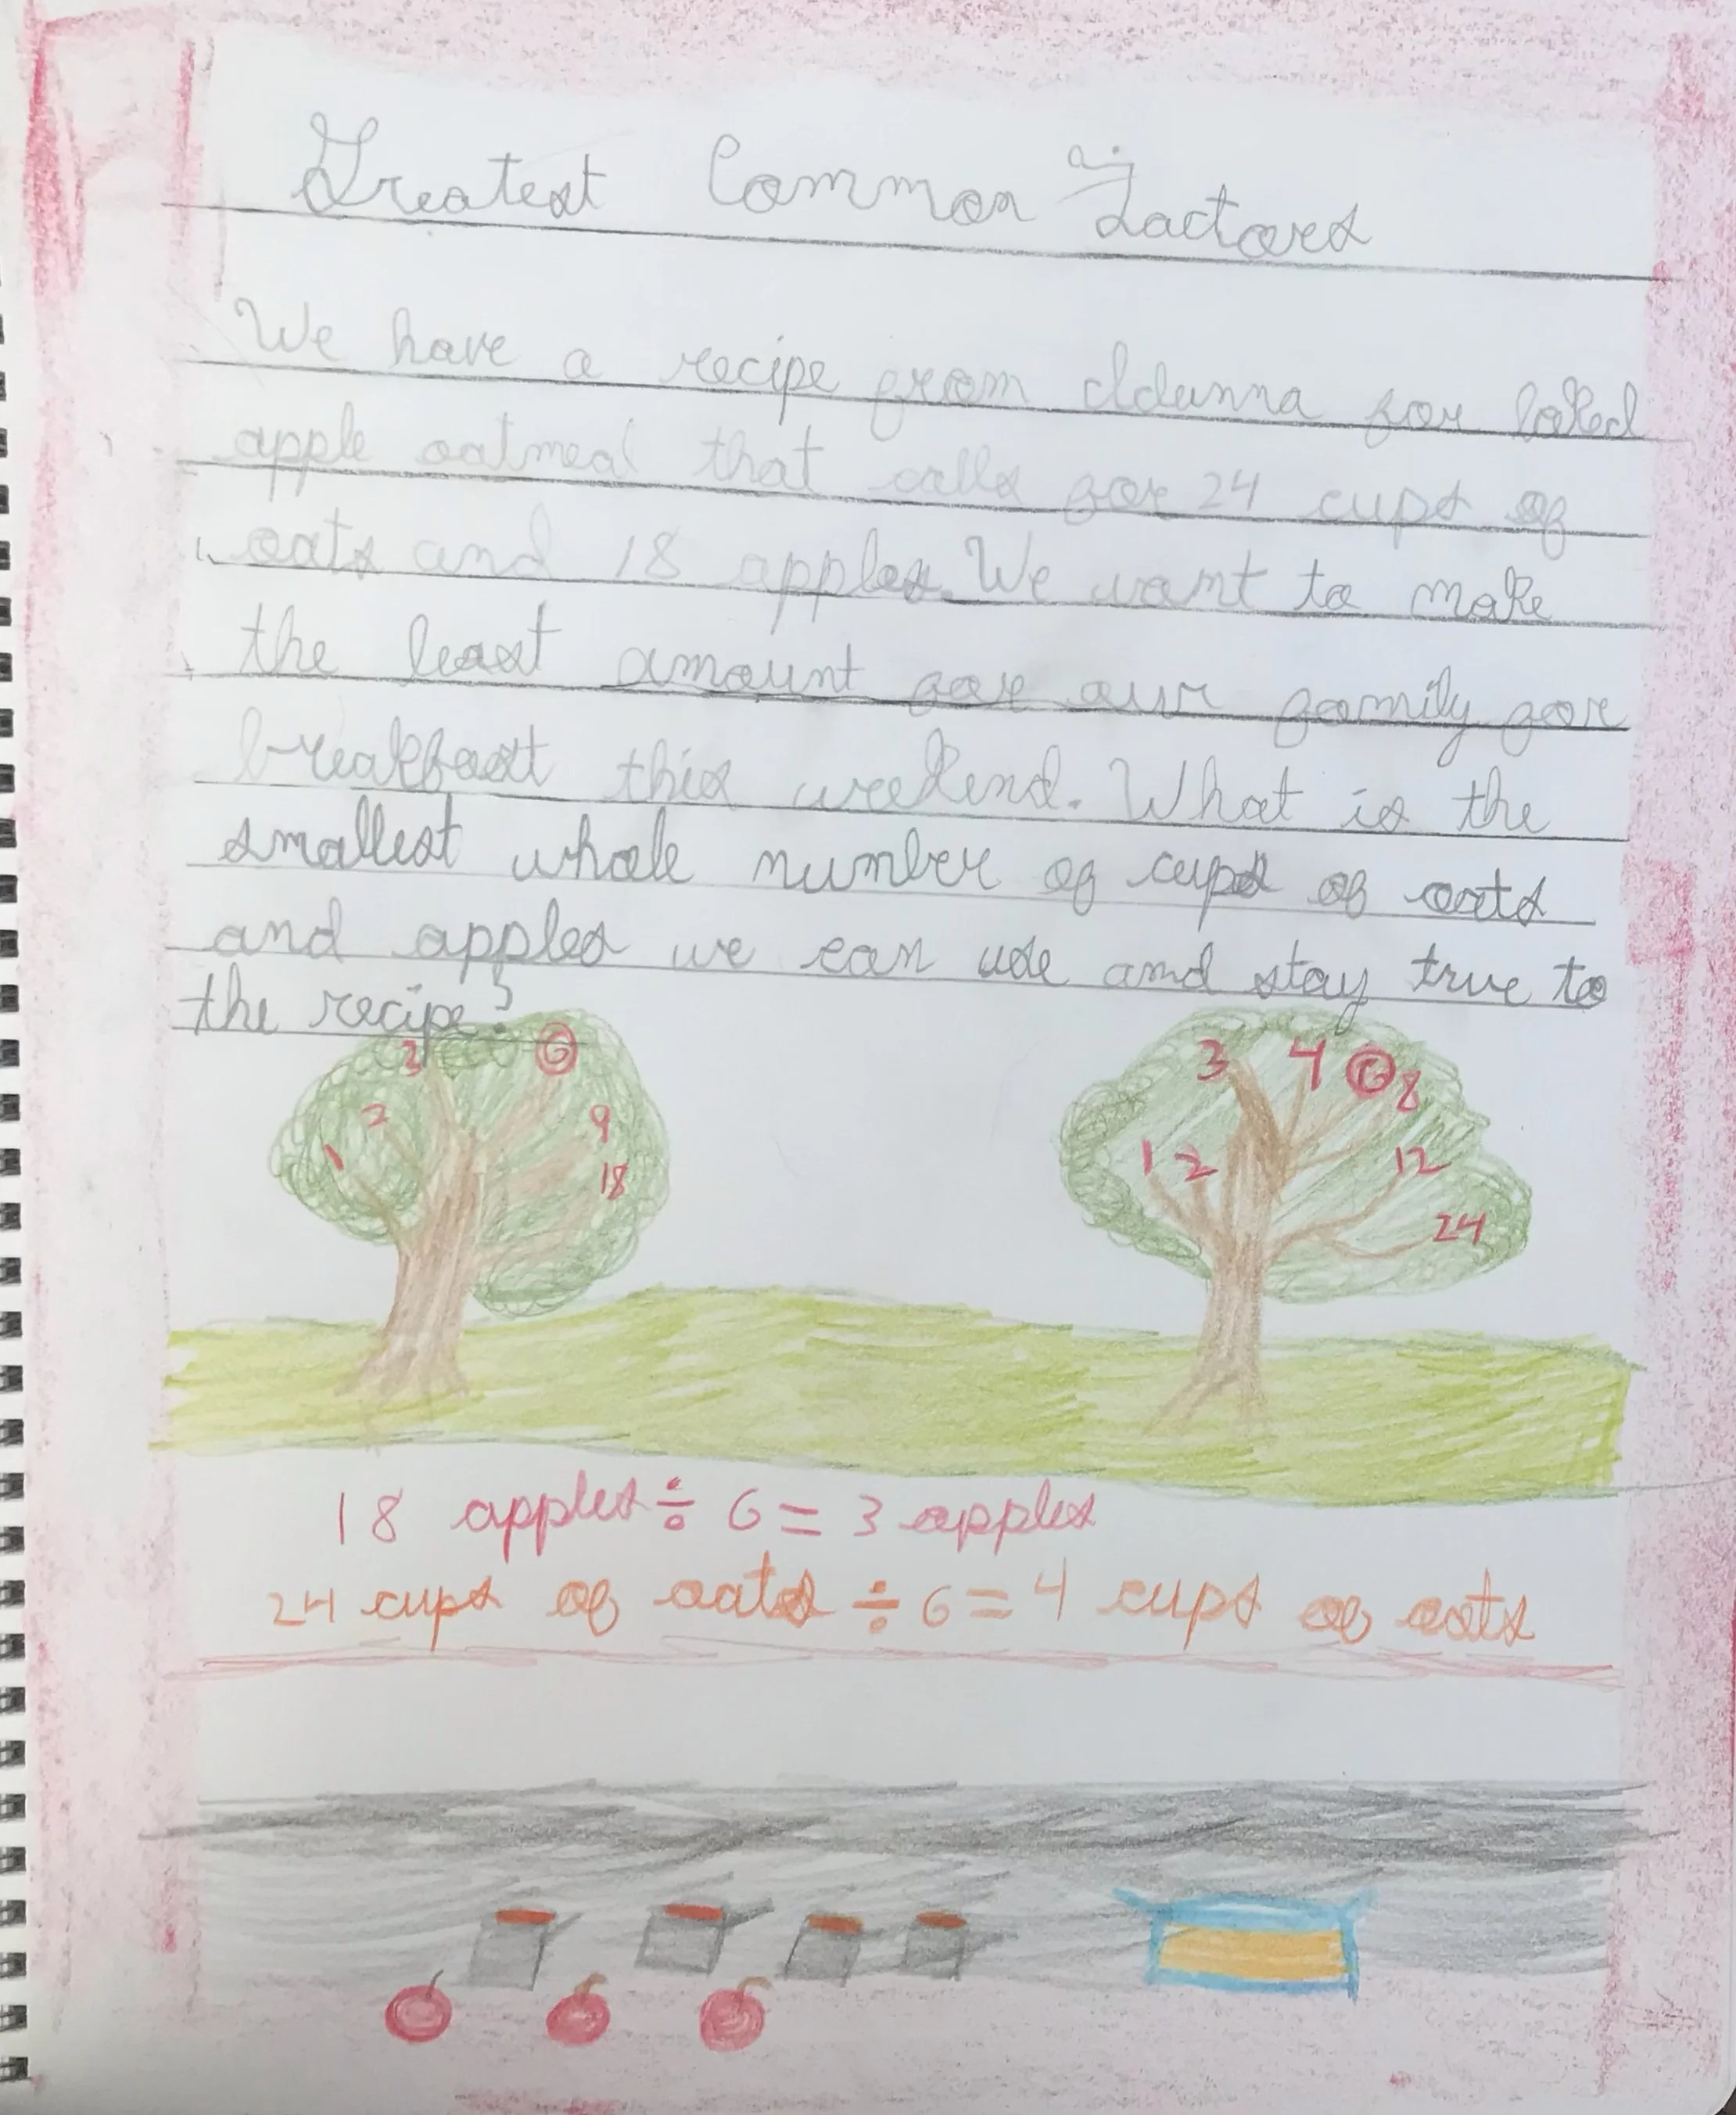 Greatest Common Factors
We have a recipe from Idunna for baked
apple oatmeal that calls for 24 cups of
oats and 18 apples. We want to make
the least amount for our family for
breakfast this weekend. What is the
smallest whole number of cups of oats
and apples we can use and stay true to
the recipe?
3 6
2 9
1 18
3 4 6 8
1 2 12
24
18 apples ÷ 6 = 3 apples
24 cups of oats ÷ 6 = 4 cups of oats